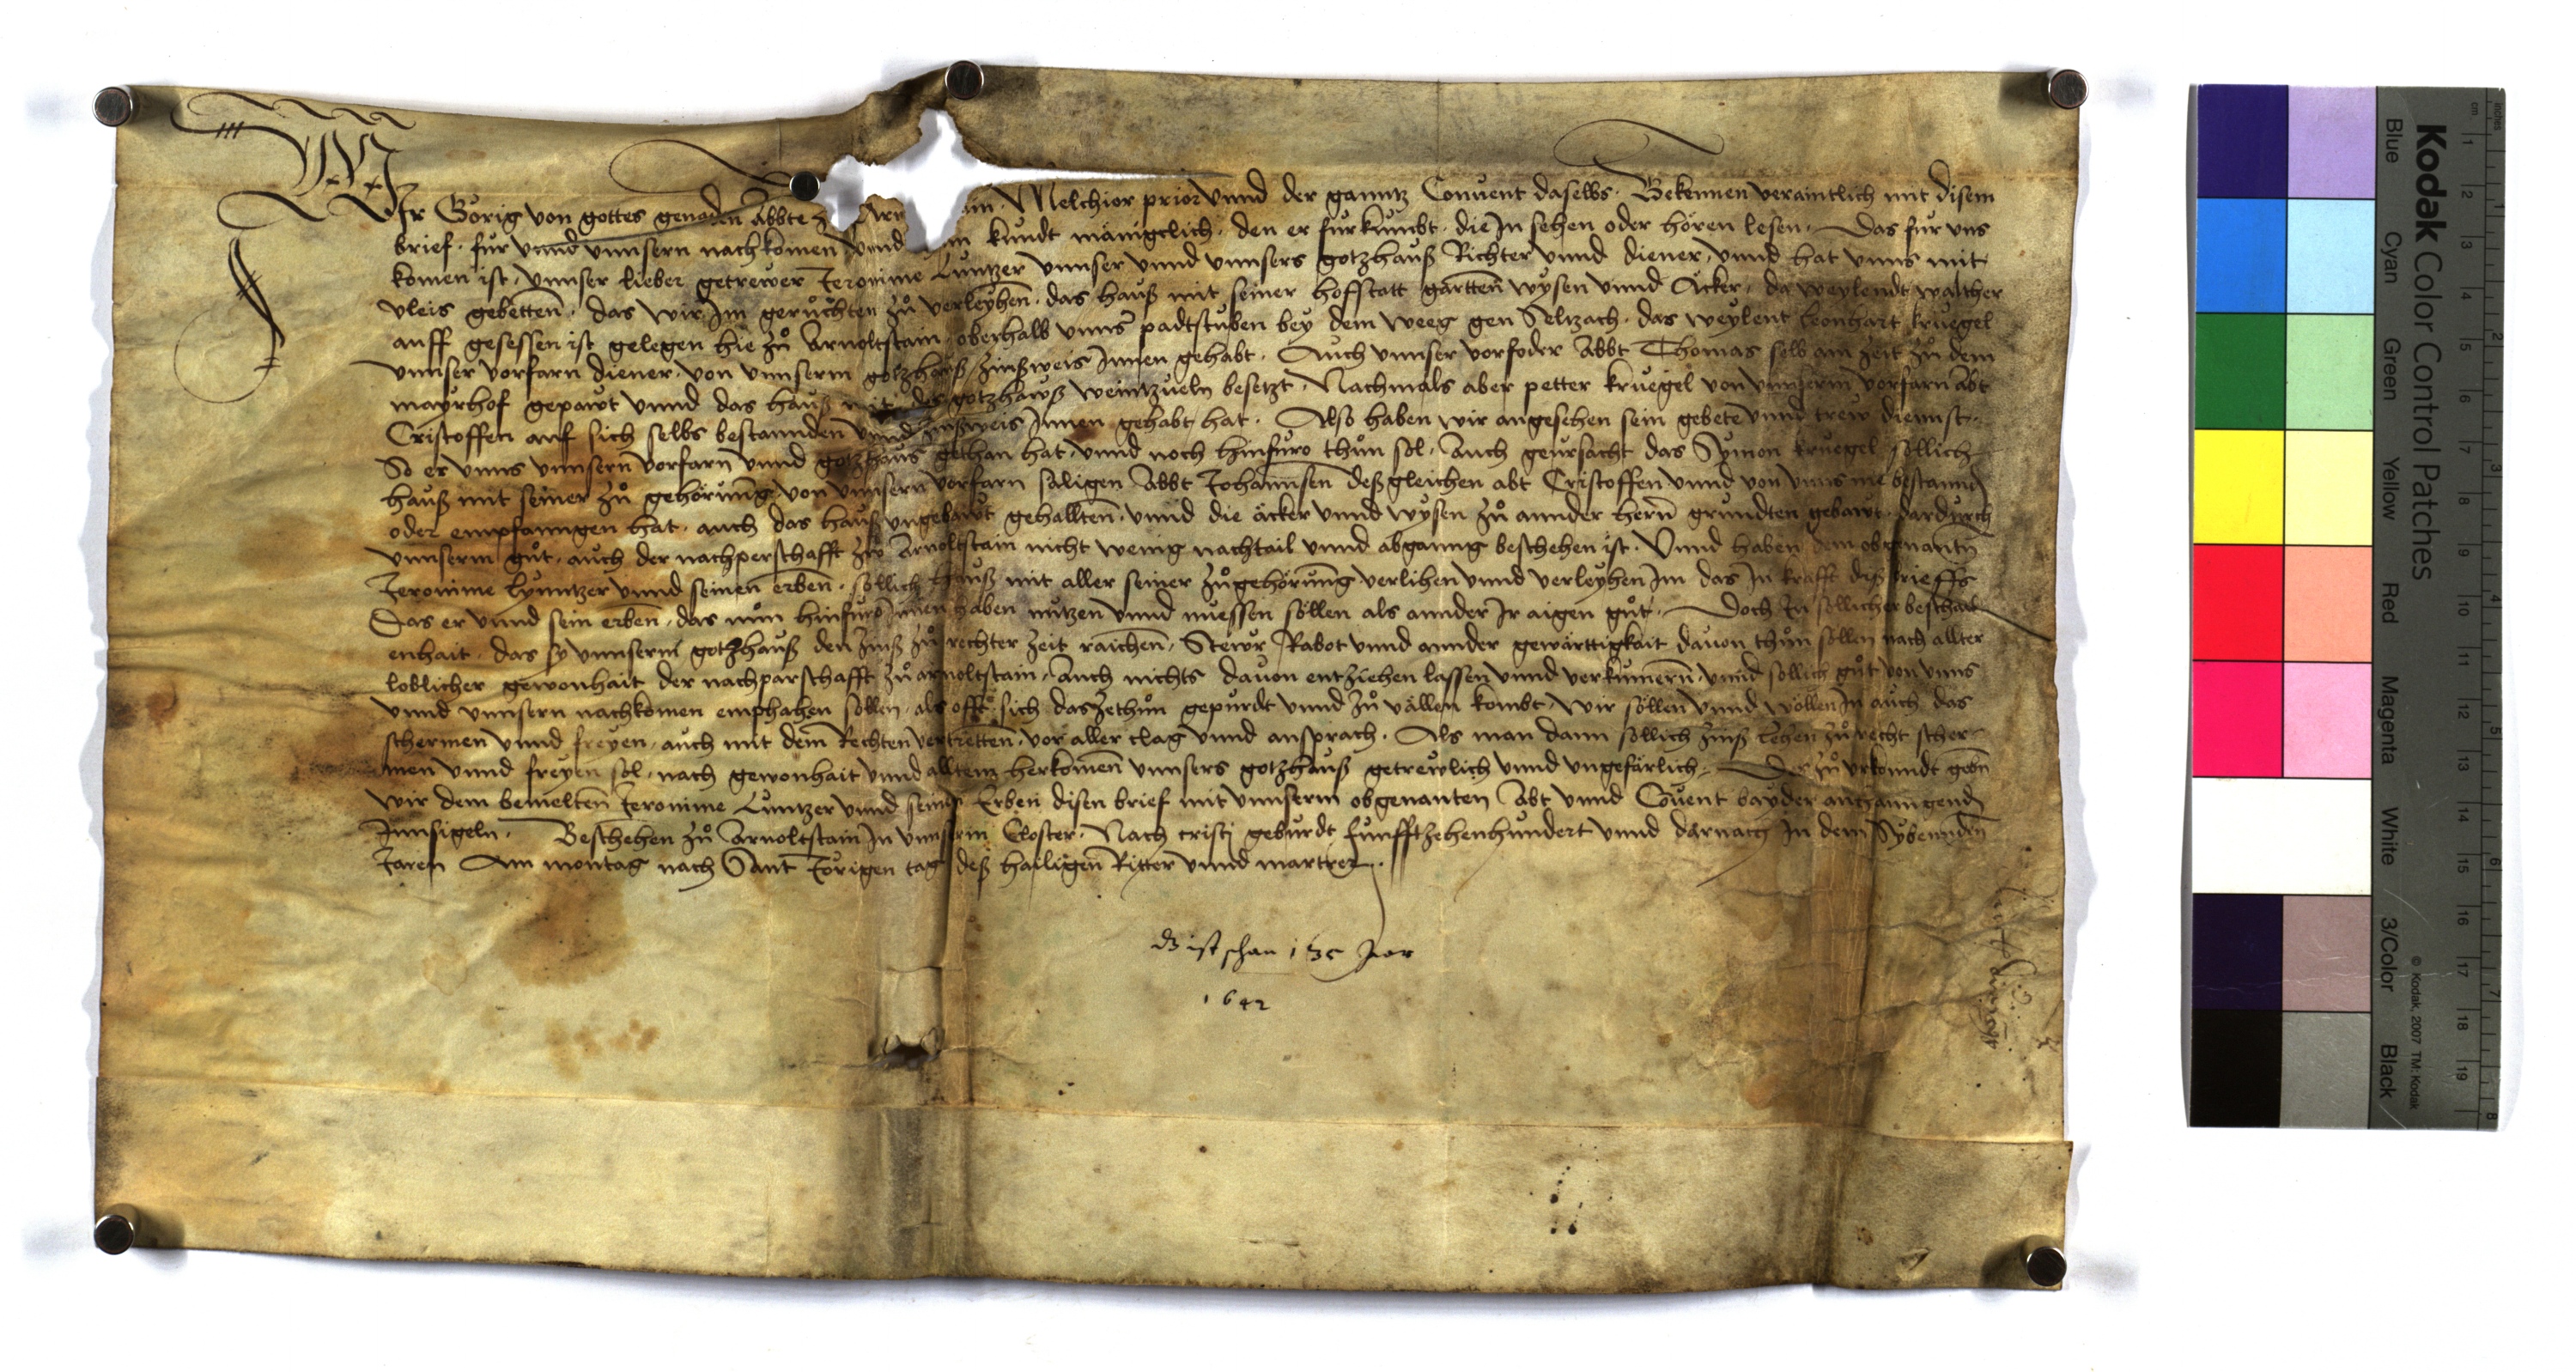 Wir Görig von gottes genaden Abbte Melchior prior vnnd der ganntz Conuent daselbs. Bekennen veraintlich mit disem
brief. für vnnd vnnsern nachkomen vnnd kundt mänigclich. den er fürkumbt. die In sehen oder hören lesen. Das für vns
komen ist, vnnser lieber getrewer Jeronime Luntzer vnnser vnnd vnnsers gotzhauß Richter vnnd diener, vnnd hat vnns mit
vleis gebetten. das wir Im geruchten zů verleyhen. das hauß mit seiner hoffstatt gärtten wysen vnnd Äcker, da weylendt walther
auff gesessen ist gelegen hie zů Arnoltstain oberhalb vnns padtstuben bey dem weeg gen Seltzach. das weylent leonhart kruegel
vnnser vorfarn diener. von vnnserm gotzhauß zinßweis Innen gehabt. Auch vnnser vorfoder Abbt Thomas selb am zeit zů dem
mayrhof gepawt vnnd das hauß mit des gotzhawß weintzueln besetzt. Nachmals aber petter kruegel von vnnserm vorfarn abt
Cristoffen auf sich selbs bestannden vnnd zinßweis Innen gehabt hat. Also haben wir angesehen sein gebete vnnd trew diennst.
So er vnns vnnsern vorfarn vnnd gotzhaus gethan hat, vnnd noch hinfüro thůn sol. auch geursacht das Symon kruegel söllich
hauß mit seiner zů gehörung. von vnnsern vorfarn säligen Abbt Johannsen deßgleichen abt Cristoffen vnnd von vnns nie bestannd
oder empfanngen hat. auch das hauß vngebawt gehallten. vnnd die äcker vnnd wysen zů annder hern grundten gebawt. dardurch
vnnserm gůt. auch der nachperschafft zů Arnoltstain nicht wenig nachtail vnnd abganng beschehen ist. Vnnd haben dem obgenantn
Jeronime Lynntzer vnnd seinen erben. söllich hauß mit aller seiner zůgehörung verlihen vnnd verleyhen Im das In krafft diß brieffs
Das er vnnd sein erben. das nun hinfüro Innen haben nutzen vnnd niessen söllen als annder Ir aigen gůt. Doch In söllicher beschaid
enhait. das sy vnnserm gotzhauß den zinß zů rechter zeit raichen. Stewr Rabot vnnd annder gewärttigkait dauon thůn söllen nach allter
loblicher gewonhait der nachparschafft zů arnoltstain. Auch nichts dauon entziehen lassen vnnd verkümern. vnnd söllich gůt von vnns
vnnd vnnsern nachkomen emphahen söllen. als offt sich das zethůn gepürdt vnnd zů vällen kombt. wir söllen vnnd wöllen In auch das
schermen vnnd freyen. auch mit dem Rechten vertretten. vor aller clag vnnd ansprach. Als man dann söllich zinß lehen zů recht scher
men vnnd freyen sol. nach gewonhait vnnd alltem herkomen vnnsers gotzhauß getrewlich vnnd vngefärlich. Des zů vrkunndt gebn
wir dem bemelten Jeronime Luntzer vnnd seinen Erben disen brief mit vnnserm obgenanten Abt vnnd Couent bayder anhanngenden
Innsigeln. Beschehen zů Arnoltstain In vnnserm Closter. Nach cristi geburdt funffzehenhundert vnnd darnach In dem Sybennden
Jaren Am montag nach Sant Jörigen tag deß hailigen Ritter vnnd martrer.
ist schon 135 Jaar
1642